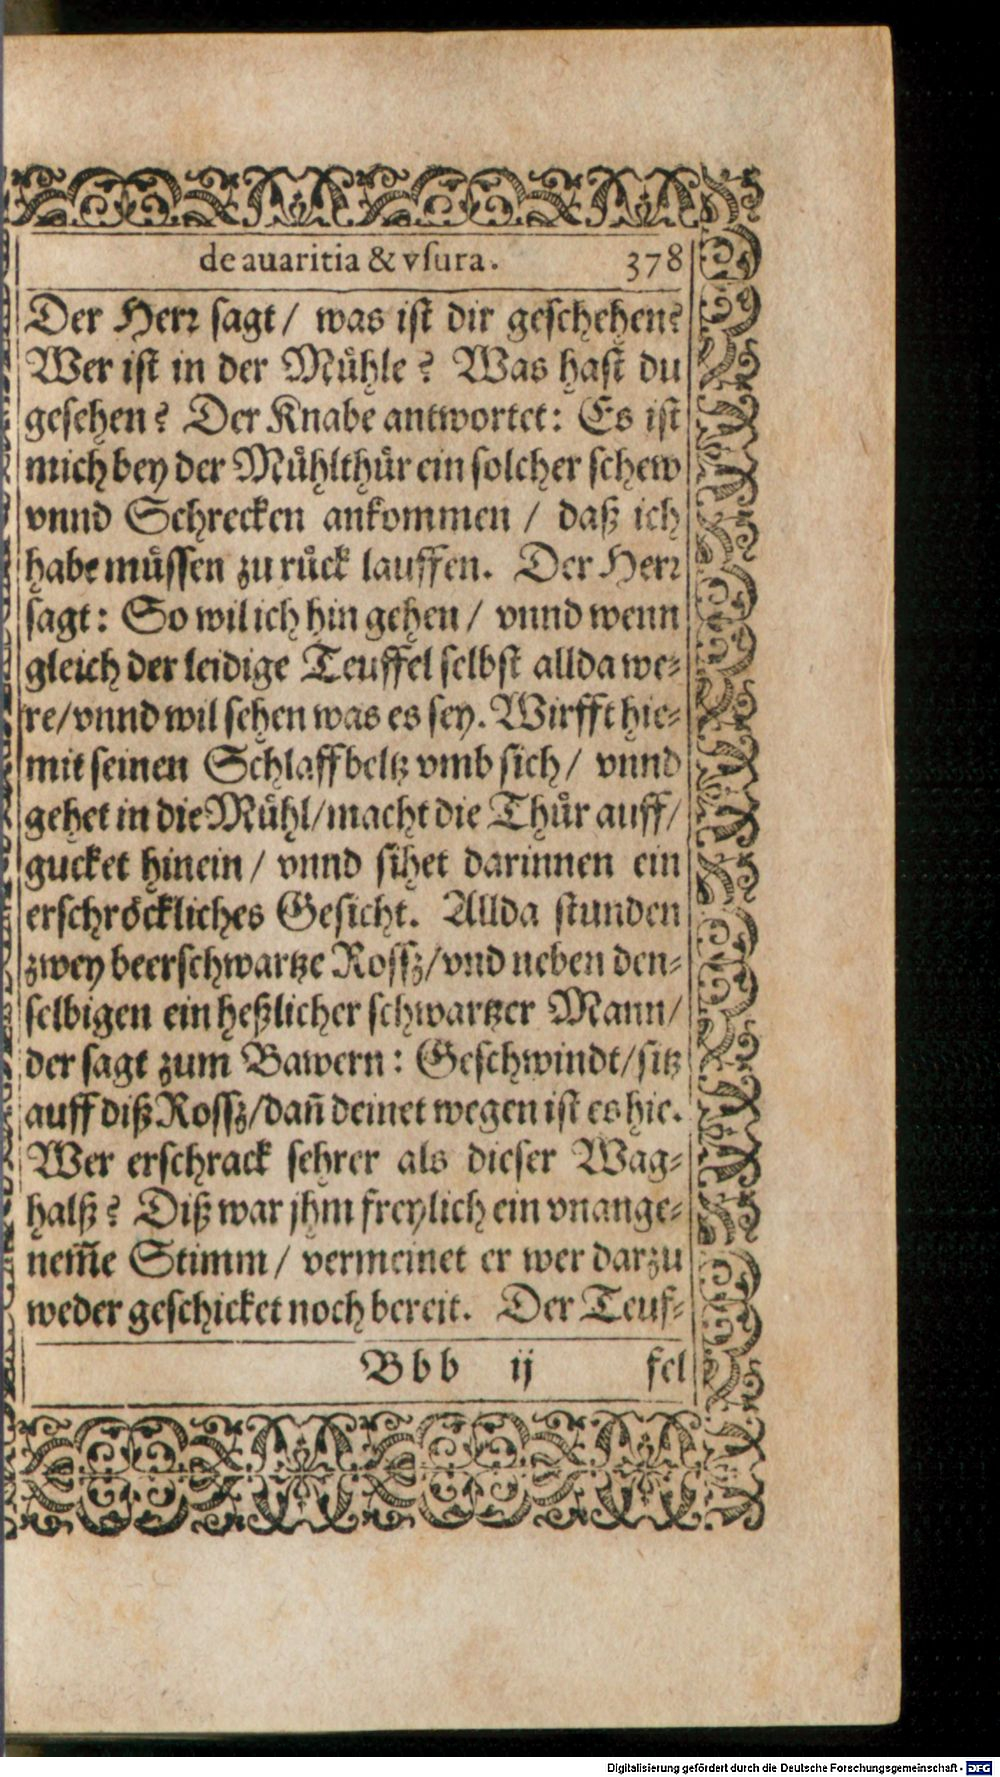 de auaritia & vſura. 378
Der Herꝛ ſagt / was iſt dir geſchehen?
Wer iſt in der Muͤhle? Was haſt du
geſehen? Der Knabe antwortet: Es iſt
mich bey der Muͤhlthuͤr ein ſolcher ſchew
vnnd Schrecken ankommen / daß ich
habe muͤſſen zu ruͤck lauffen. Der Herꝛ
ſagt: So wil ich hin gehen / vnnd wenn
gleich der leidige Teuffel ſelbſt allda we⸗
re/ vnnd wil ſehen was es ſey. Wirfft hie⸗
mit ſeinen Schlaffbeltz vmb ſich / vnnd
gehet in die Muͤhl/ macht die Thuͤr auff/
gucket hinein / vnnd ſihet darinnen ein
erſchroͤckliches Geſicht. Allda ſtunden
zwey beerſchwartze Roſſz/ vnd neben den⸗
ſelbigen ein heßlicher ſchwartzer Mann/
der ſagt zum Bawern: Geſchwindt/ ſitz
auff diß Roſſz/ dañ deinet wegen iſt es hie.
Wer erſchrack ſehrer als dieſer Wag⸗
halß? Diß war jhm freylich ein vnange⸗
nem̃e Stimm / vermeinet er wer darzu
weder geſchicket noch bereit. Der Teuf⸗
B b b ij fel
Digitalisierung gefördert durch die Deutsche Forschungsgemeinschaft - DFG